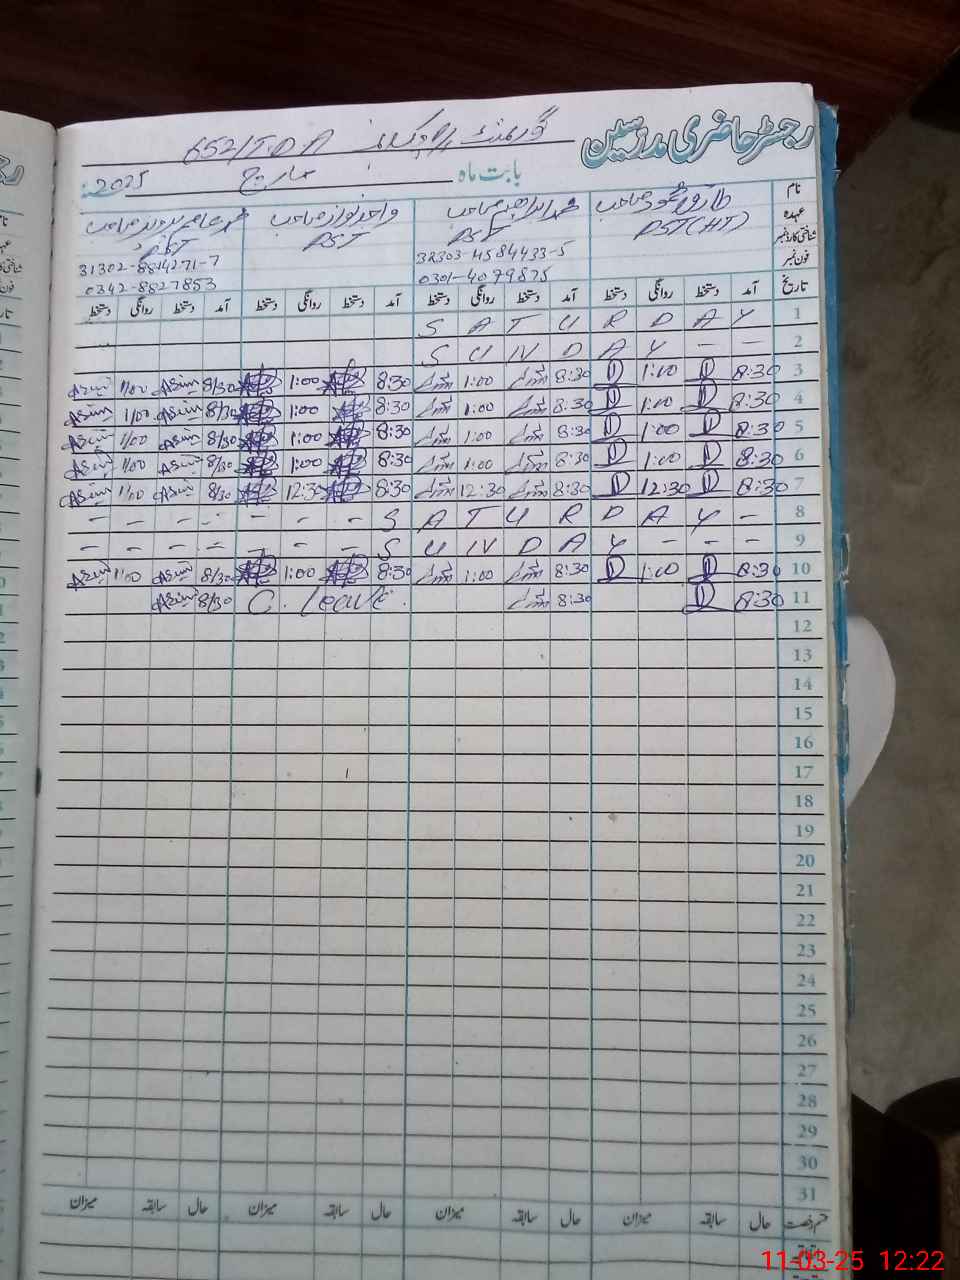 رجسٹر حاضری مدرسین
گورنمنٹ 652/T.D.A
بابت ماہ مارچ 2025ء
نام طارق محمود صاحب محمد ابراہیم صاحب صاحب صاحب
عہدہ PST(HT) PST PST PST
شناختی کارڈ نمبر 32303-4584433-5 31302-8814271-7
فون نمبر 0301-4079875 0342-8827853
تاریخ آمد دستخط روانگی دستخط آمد دستخط روانگی دستخط آمد دستخط روانگی دستخط آمد دستخط روانگی دستخط
1 S A T U R D A Y
2 S U N D A Y - -
3 8:30 1:00 8:30 1:00 8:30 1:00 8/30 Asim 1/00 Asim
4 8:30 1:00 8:30 1:00 8:30 1:00 8/30 Asim 1/00 Asim
5 8:30 1:00 8:30 1:00 8:30 1:00 8/30 Asim 1/00 Asim
6 8:30 1:00 8:30 1:00 8:30 1:00 8/30 Asim 1/00 Asim
7 8:30 12:30 8:30 12:30 8:30 12:30 8/30 Asim 1/00 Asim
8 - - - - - - - S A T U R D A Y -
9 - - - - - - - S U N D A Y - - -
10 8:30 1:00 8:30 1:00 8:30 1:00 8/30 Asim 1/00 Asim
11 8:30 8:30 C. Leave. 8/30 Asim
12
13
14
15
16
17
18
19
20
21
22
23
24
25
26
27
28
29
30
31
حال سابقہ میزان حال سابقہ میزان حال سابقہ میزان حال سابقہ میزان
11-03-25 12:22